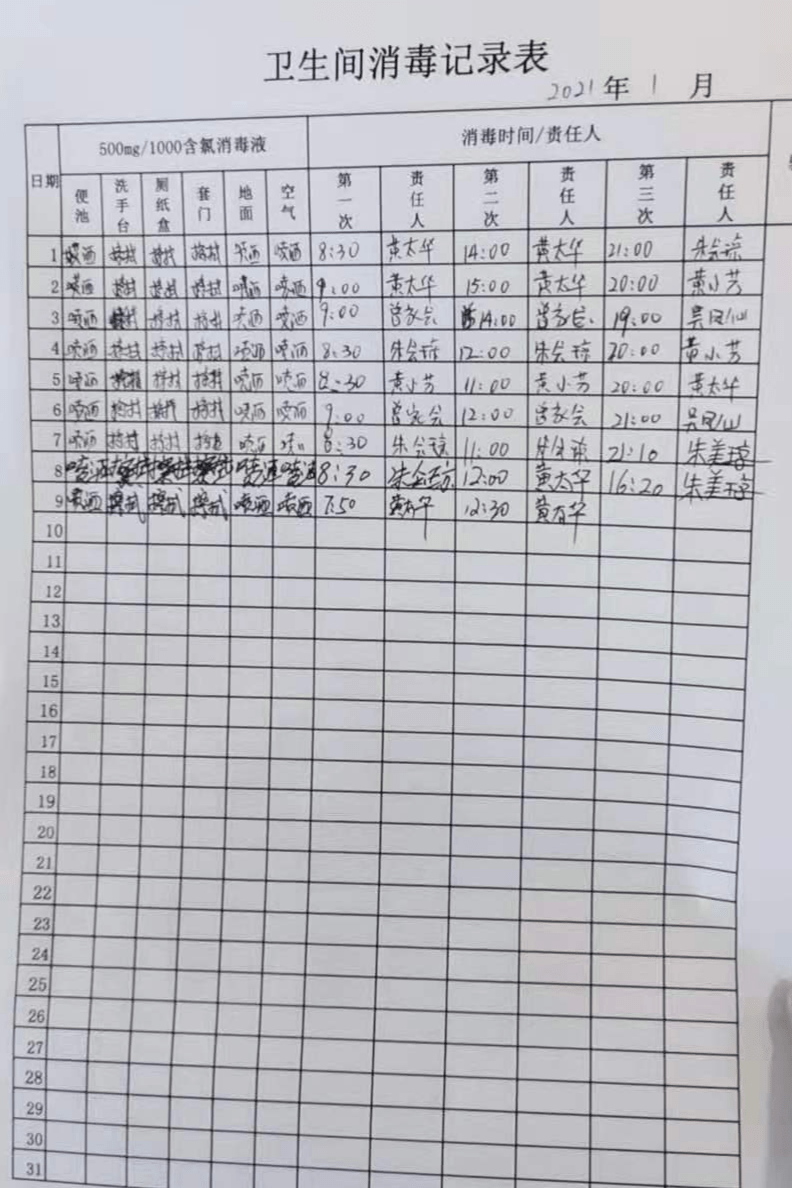 卫生间消毒记录表
2021年 1 月
500mg/1000含氯消毒液 消毒时间/责任人
日期 便池 洗手台 厕纸盒 套门 地面 空气 第一次 责任人 第二次 责任人 第三次 责任人
1 喷洒 擦拭 擦拭 擦拭 喷洒 喷洒 8:30 黄太华 14:00 黄太华 21:00 朱会琼
2 喷洒 擦拭 擦拭 擦拭 喷洒 喷洒 9:00 黄太华 15:00 黄太华 20:00 黄小芳
3 喷洒 擦拭 擦拭 擦拭 喷洒 喷洒 9:00 曾家会 14:00 曾家会 19:00 吴凤仙
4 喷洒 擦拭 擦拭 擦拭 喷洒 喷洒 8:30 朱会琼 12:00 朱会琼 20:00 黄小芳
5 喷洒 擦拭 擦拭 擦拭 喷洒 喷洒 8:30 黄小芳 11:00 黄小芳 20:00 黄太华
6 喷洒 擦拭 擦拭 擦拭 喷洒 喷洒 9:00 曾家会 12:00 曾家会 21:00 吴凤仙
7 喷洒 擦拭 擦拭 擦拭 喷洒 8:30 朱会琼 11:00 朱会琼 21:10 朱美琼
8 喷洒 擦拭 擦拭 擦拭 喷洒 喷洒 8:30 朱会琼 12:00 黄太华 16:20 朱美琼
9 喷洒 擦拭 擦拭 擦拭 喷洒 喷洒 7:50 12:30
10
11
12
13
14
15
16
17
18
19
20
21
22
23
24
25
26
27
28
29
30
31